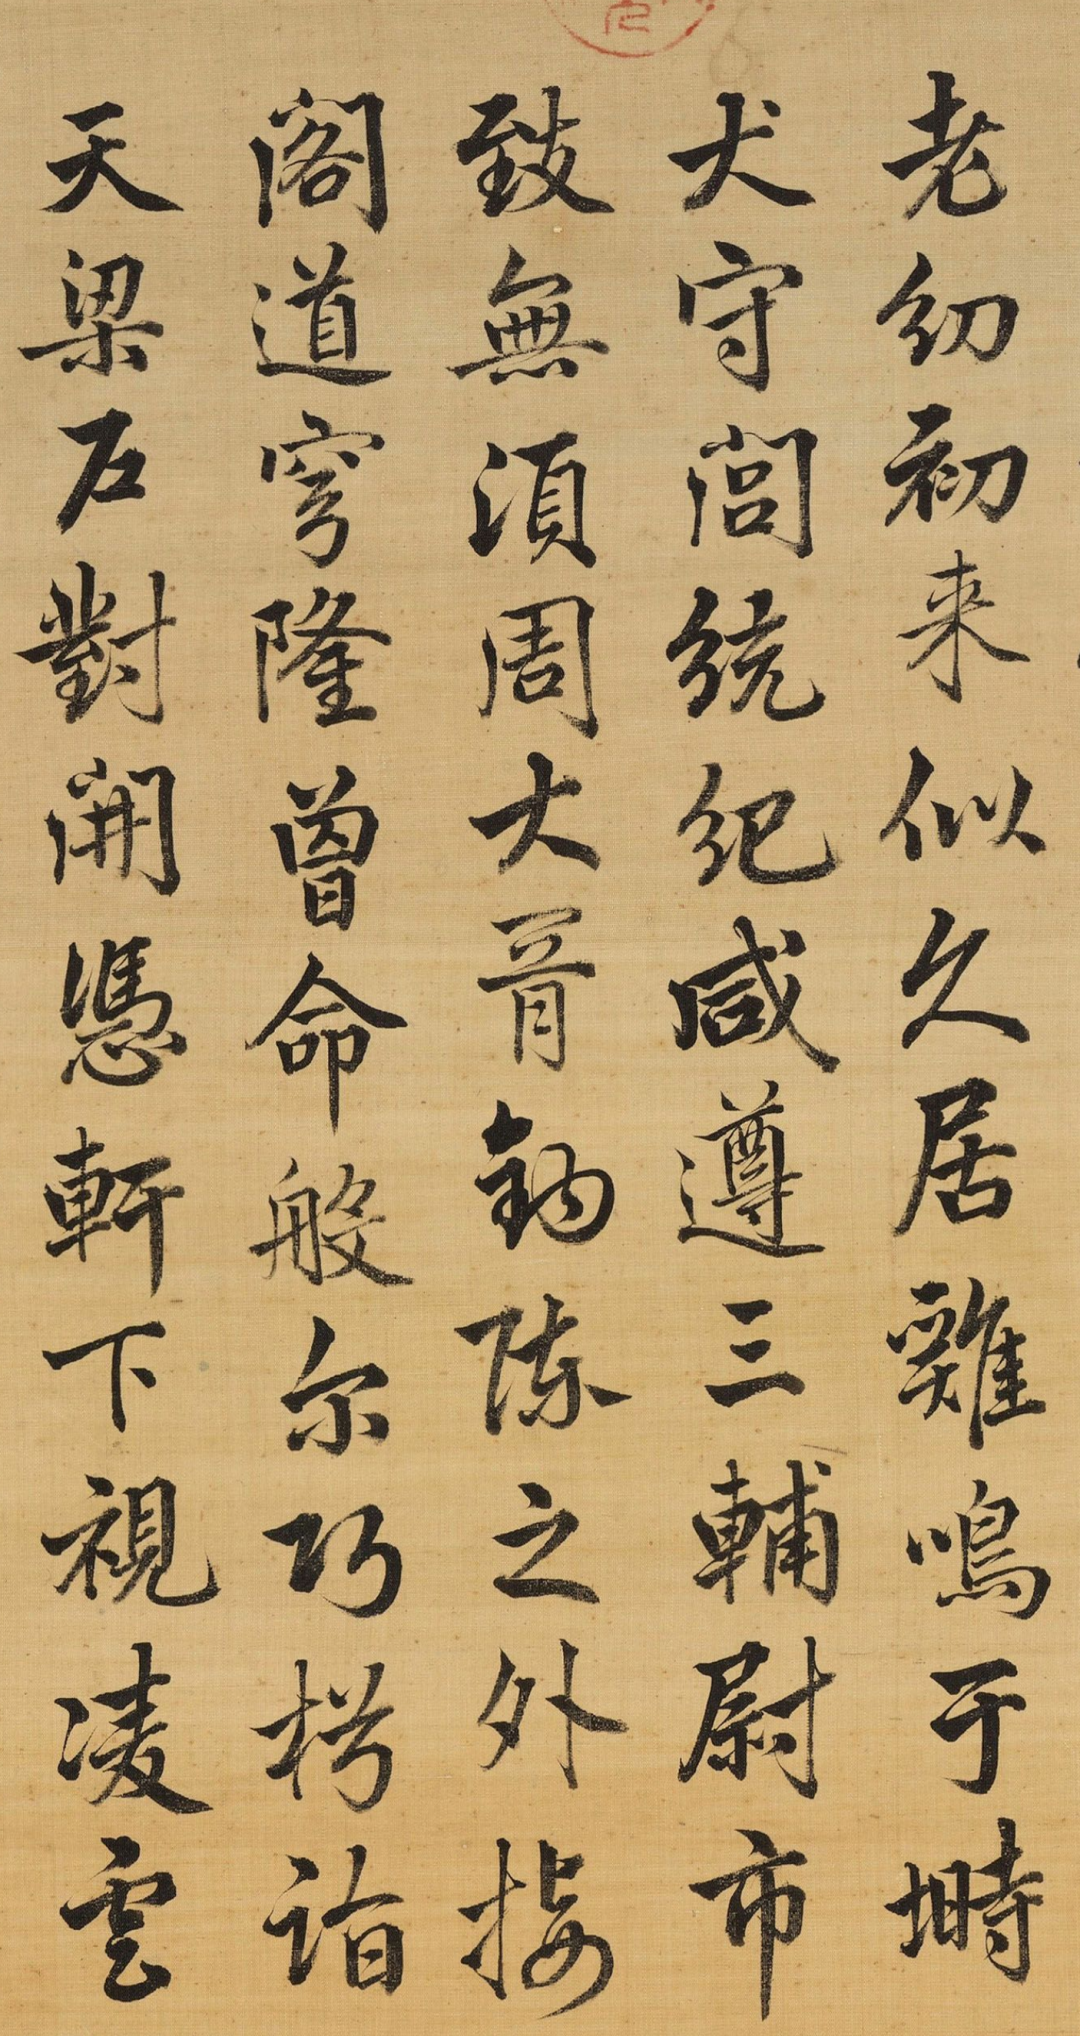 老幼初来似久居雞鳴于塒
犬守閭統紀咸遵三輔尉市
致無須周大胥鉤陳之外接
閣道穹隆曾命般尔巧構詣
天梁反對開憑軒下視凌雲